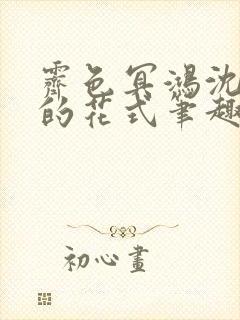 霽色冥鴻沈
的花式筆趣
初心畫